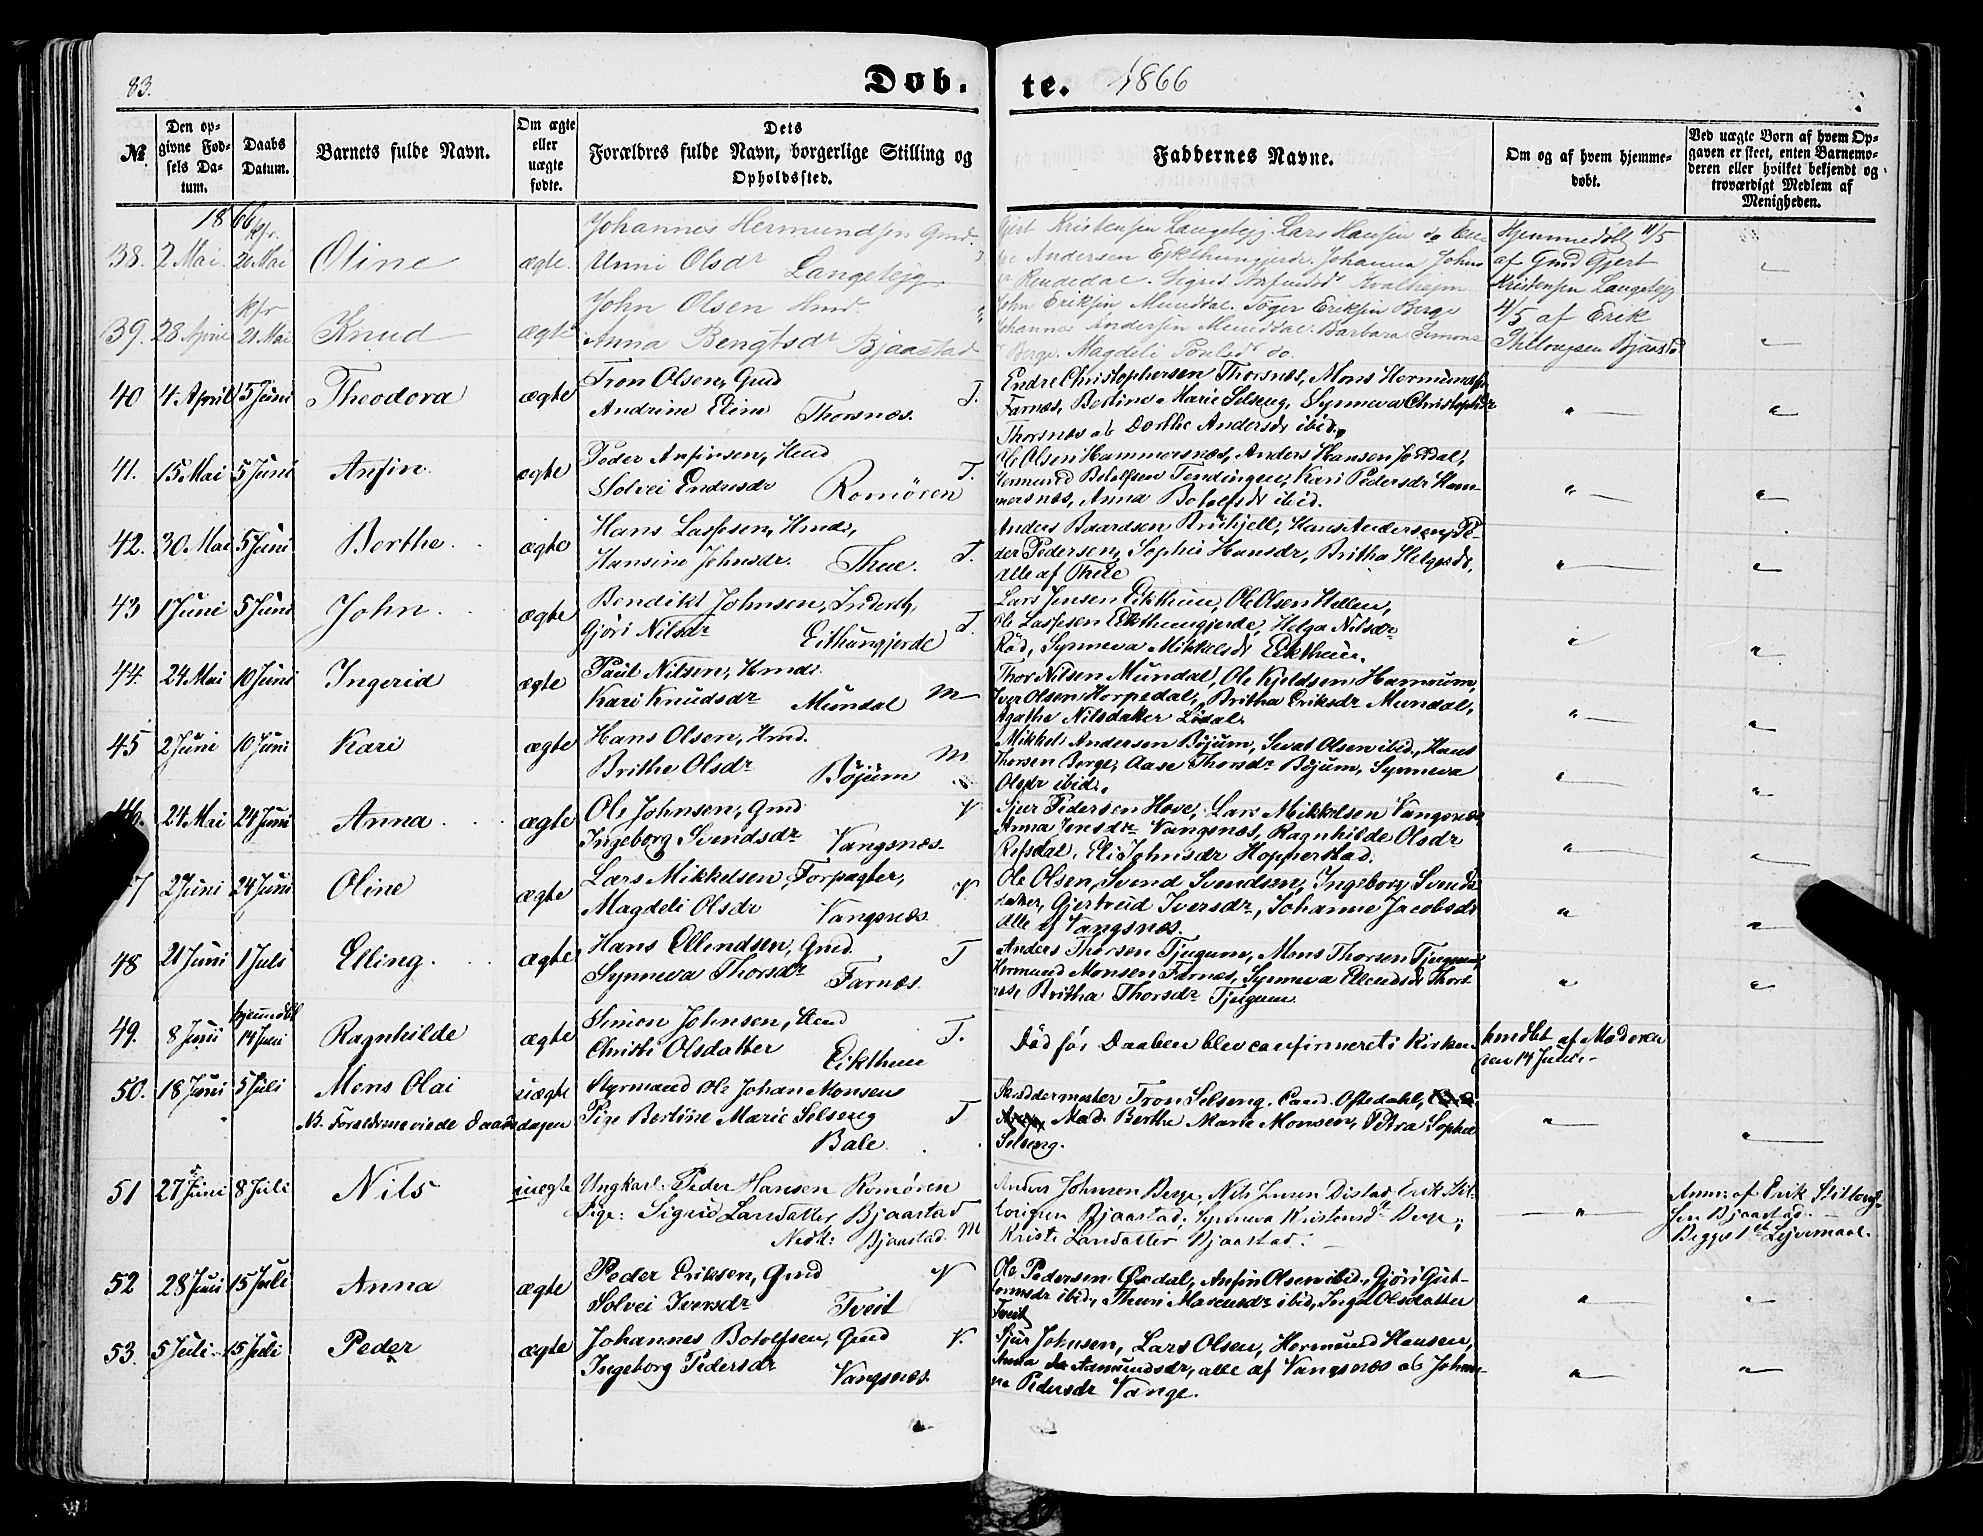 83.
Døb-
te. 1866
№
Den op-
givne Fød-
sels Da-
tum.
Daabs
Datum.
Barnets fulde Navn.
Om ægte
eller
uægte
fødte.
Dets
Forældres fulde Navn, borgerlige Stilling og
Opholdssted.
Faddernes Navne.
Om og af hvem hjemme-
døbt.
Ved uægte Børn af hvem Op-
gaven er skeet, enten Barnemo-
deren eller hvilket bekjendt og
troværdigt Medlem af
Menigheden.
1866
38. 2 Mai 20 Mai Oline ægte. Johannes Hermundsen Gmd.
Unni Olsdr Langeteig
Gjert Kristensen Langeteig. Lars Hansen do
Andersen Eikthungjerde. Johanna Johns
Rendedal. Sigrid
Hjemmedøbt 11/5
af Gmd Gjert
Kristensen Langeteig
39. 28 April 21 Mai Knud ægte John Olsen Hmd.
Anna Bengtsdr Bjaastad
John Eriksen Munddal. Tøger Eriksen Berge
Johanna Andersen Munddal. Barbara Simons
Berge. Magdeli Poulsdr do.
4/5 af Erik
Stillougsen Bjaastad
40 4. April 5 Juni Theodora ægte Tron Olsen, Gmd T.
Andrine Eline Thorsnæs.
Endre Christophersen Thorsnæs, Mons Hermundsen
Farnæs, Bertine Marie Selseng, Synneva Christophdr
Thorsnæs ob Dorthe Andersdr ibid.
41. 15 Mai 5 Juni Anfin. ægte Peder Anfinsen, Hmd T.
Solvei Endresdr Romøren
Ole Olsen Hammersnæs, Anders Hansen Joddal,
Hermund Botolfsen Tendingen, Kari Pedersdr Ham-
mersnæs, Anna Botolfsdr ibid.
42. 30. Mai 5 Juni Berthe. ægte Hans Lassesen, Hmd, T.
Hansine Johnsdr. Thue.
Anders Baardsen Bruhjell, Hans Andersen, Pe-
der Pedersen, Sophie Hansdr, Britha Helgesdr,
Alle af Thue
43 1 Juni 5 Juni John. ægte Bendikt Johnsen, Inderst, T.
Gjøri Nilsdr Eithungjerde
Lars Jensen Eikthun, Ole Olsen Hellen,
Ole Lassesen Eikthungjerde, Helga Nilsdr
Rød, Synneva Mikkelsdr Eikthun.
44. 24 Mai 10 Juni Ingerid ægte Paul Nilsen, Hmd. M
Kari Knudsdr Mundal
Thor Nilsen Mundal, Ole Kjeldsen Hamrum,
Iver Olsen Horpedal, Britha Eriksdr Mundal,
Agathe Nilsdatter Lidal.
45 2 Juni 10 Juni Kari ægte Hans Olsen, Hmd. M
Brithe Olsdr Bøjum
Mikkel Andersen Bøjum, Sivat Olsen ibid., Hans
Thorsen Berge, Aase Thorsdr Bøjum, Synneva
Olsdr ibid.
46. 24 Mai 24 Juni Anna. ægte Ole Johnsen, Gmd V
Ingeborg Svendsdr Vangsnæs.
Sjur Pedersen Hove, Lars Mikkelsen Vangsnæs
Anna Jensdr Vangsnæs, Ragnhilde Olsdr
Refsdal, Eli Johnsdr Hopperstad.
47 2 Juni 24 Juni Oline ægte Lars Mikkelsen, Forpagter, V.
Magdeli Olsdr Vangsnæs.
Ole Olsen, Svend Svendsen, Ingeborg Svends-
datter, Gjertrud Iversdr, Johanne Jacobsdr
Alle af Vangsnæs.
48 21 Juni 1 Juli Elling. ægte Hans Ellendsen, Gmd. T
Synneva Thorsdr Farnæs
Anders Thorsen Tjugum, Mons Thorsen Tjugum,
Hermund Monsen Farnæs, Synneva Ellendsdr Thors-
næs, Britha Thorsdr Tjugum
49. 8 Juni hjemmedøbt
14 Juni Ragnhilde ægte Simon Johnsen, Hmd T.
Christi Olsdatter Eikthun
Død før Daaben blev confirmeret i Kirken
hmdbt af Moderen
den 14 Juni.
50. 18 Juni 5 Juli Mons Olai uægte Styrmand Ole Johan Monsen
NB. Forældrene viede Daabsdagen Pige Bertine Marie Selseng T
Bale.
Skræddermester Tron Selseng. Cand. Oftedahl,
Mad. Berthe Marie Monsen, Petra Sophie
Selseng.
51 27 Juni 8 Juli Nils uægte Ungkarl: Peder Hansen Romøren
Pige: Sigrid Larsdatter Bjaastad
Nedk: Bjaastad. M
Anders Johnsen Berge, Nils Larsen Distad Erik Stil-
lougsen Bjaastad, Synneva Kristensdr Berge,
Kristi Larsdatter Bjaastad.
Anm: af Erik Stilloug-
sen Bjaastad.
Begges 1st Lejermaal.
52 28 Juni 15 Juli Anna ægte Peder Eriksen, Gmd V
Solvei Iversdr Tveit
Ole Pedersen Øxdal, Anfin Olsen ibid., Gjøri Gut-
tormsdr ibid., Thuri Marcusdr ibid, Inga Olsdatter
Tveit
53. 5 Juli. 15 Juli Peder ægte Johannes Botolfsen, Gmd V.
Ingeborg Pedersdr Vangsnæs.
Sjur Johnsen, Lars Olsen, Hermund Hansen,
Anna Aamundsdr, alle af Vangsnæs ob Johan-
na Pedersdr Vange.